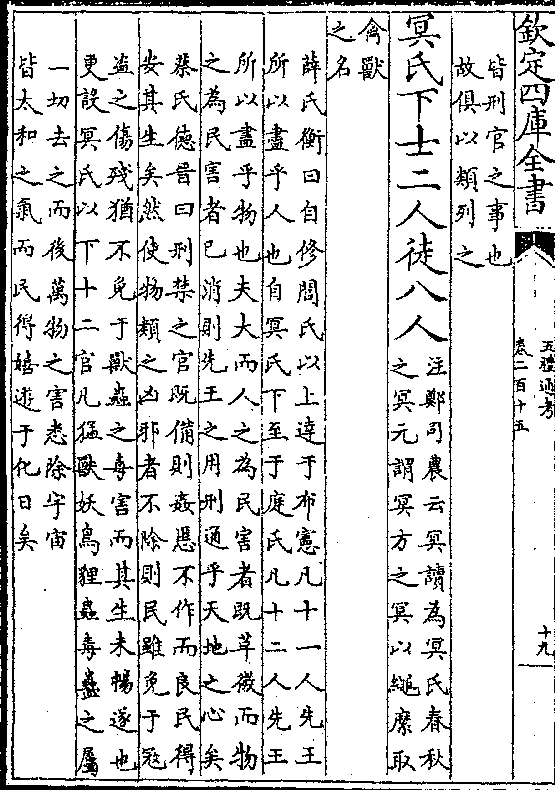 欽定四庫全書
五禮通考
卷二百十五
十九
皆刑官之事也
故俱以類列之
冥氏下士二人徒八人
注鄭司農云冥讀為冥氏春秋
之冥元謂冥方之冥以繩縻取
禽獸
之名
薛氏衡曰自修閭氏以上達于布憲凡十一人先王
所以盡乎人也自冥氏下至于庭氏凡十二人先王
所以盡乎物也夫大而人之為民害者既草薇而物
之為民害者已消則先王之用刑通乎天地之心矣
蔡氏德晉曰刑禁之官既備則姦慝不作而良民得
安其生矣然使物類之凶邪者不除則民雖免于冦
盗之傷殘猶不免于獸蟲之毒害而其生未暢遂也
更設冥氏以下十二官凡猛獸妖鳥貍蟲毒蠱之屬
一切去之而後萬物之害悉除宇宙
皆太和之氣而民得嬉遊于化日矣